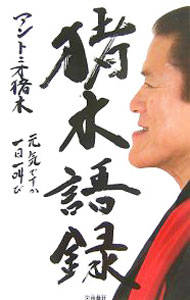 猪木語録
アントニオ猪木
元気ですか
一日一叫び